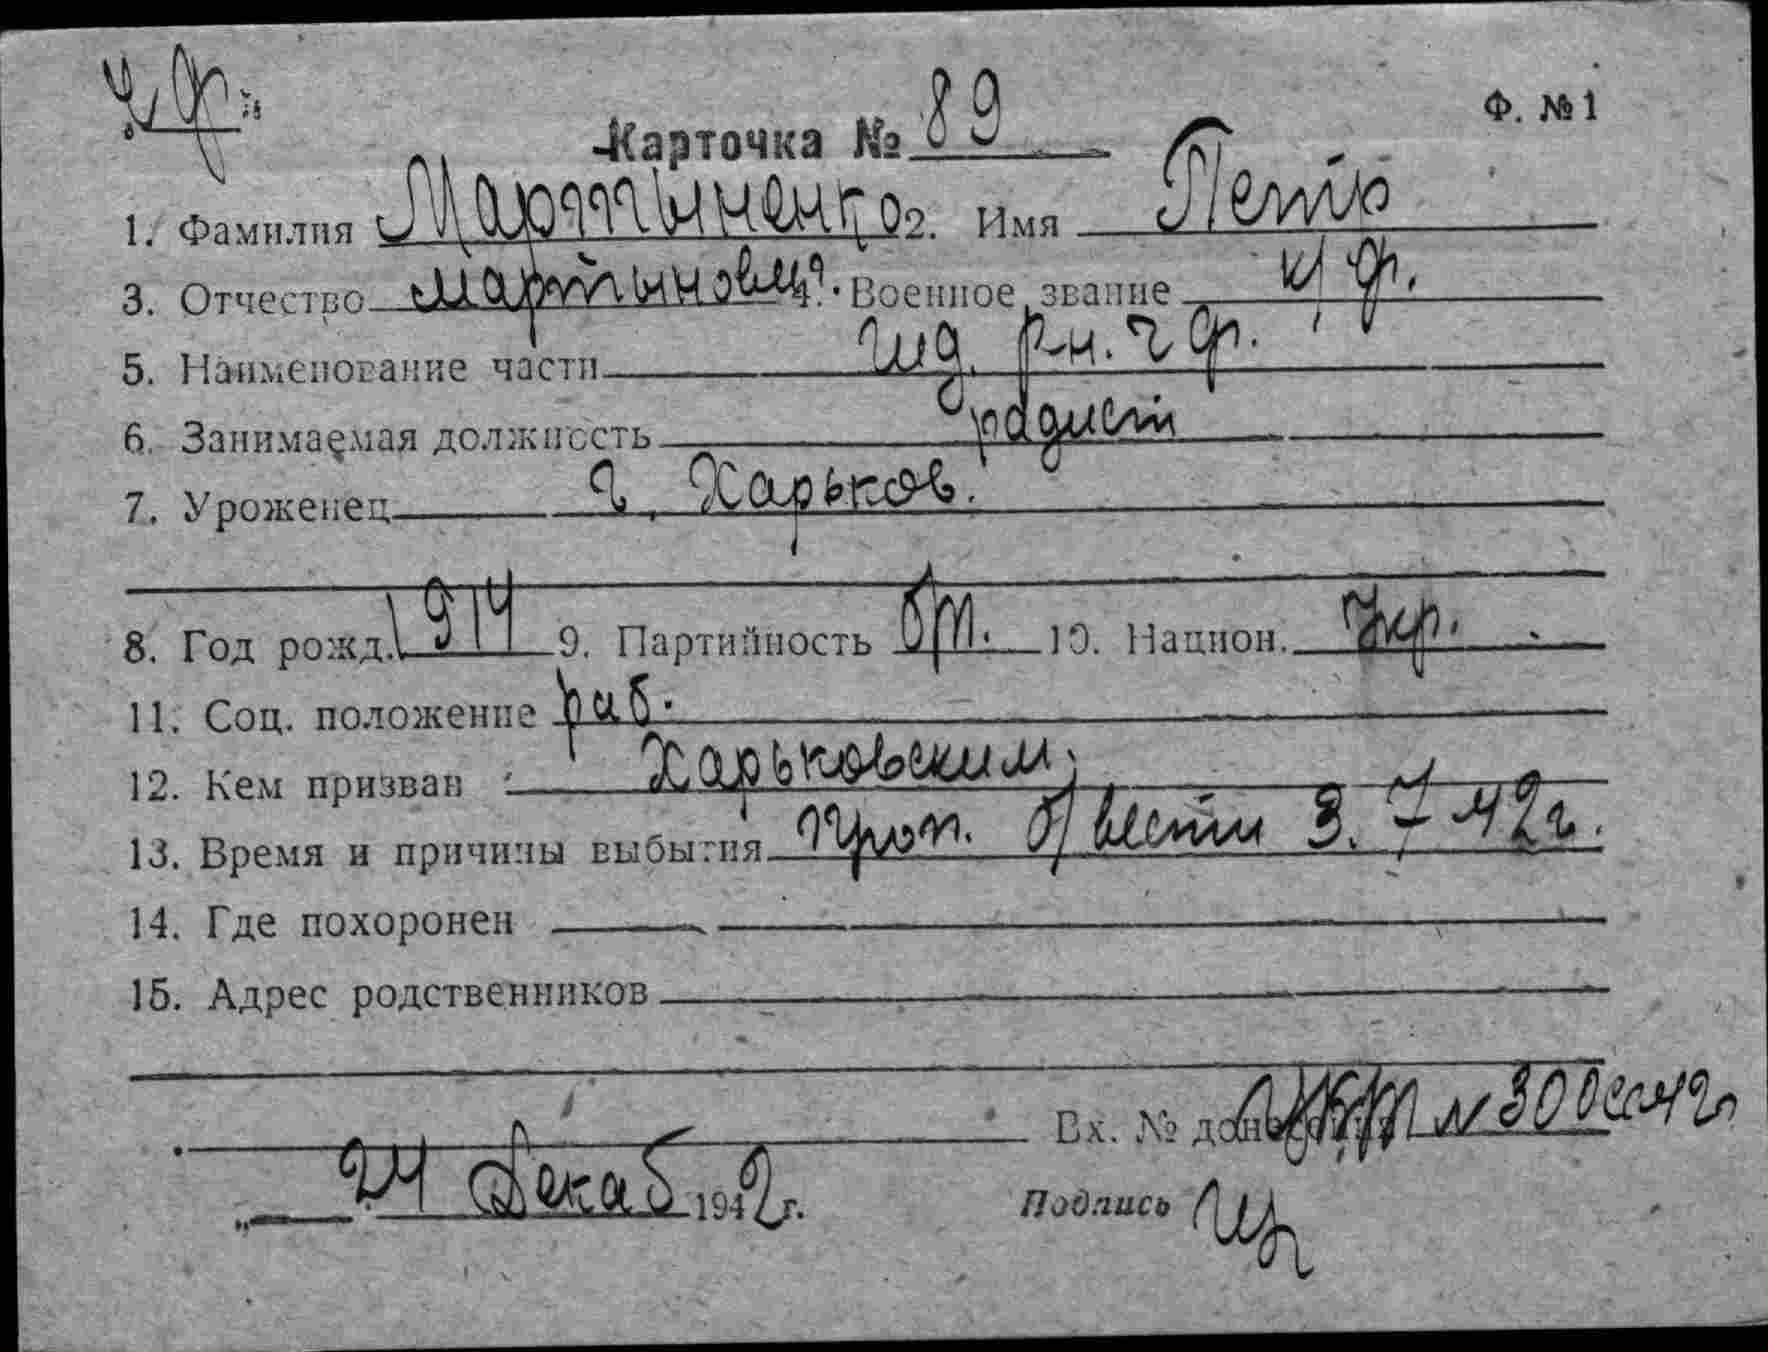 ч/ф.
Ф. № 1
Карточка № 89
1. Фамилия Мартыненко 2. Имя Петр
3. Отчество Мартынович 4. Военное звание к/ф.
5. Наименование части шд. рн. ч ф.
6. Занимаемая должность радист
7. Уроженец г. Харьков.
8. Год рожд. 1914 9. Партийность б/п. 10. Национ. Укр.
11. Соц. положение раб.
12. Кем призван Харьковским
13. Время и причины выбытия проп. б/вести 3. 7 42г.
14. Где похоронен
15. Адрес родственников
Вх. № донесения № 300сс 42г
„ 24 Декаб 1942 г. Подпись